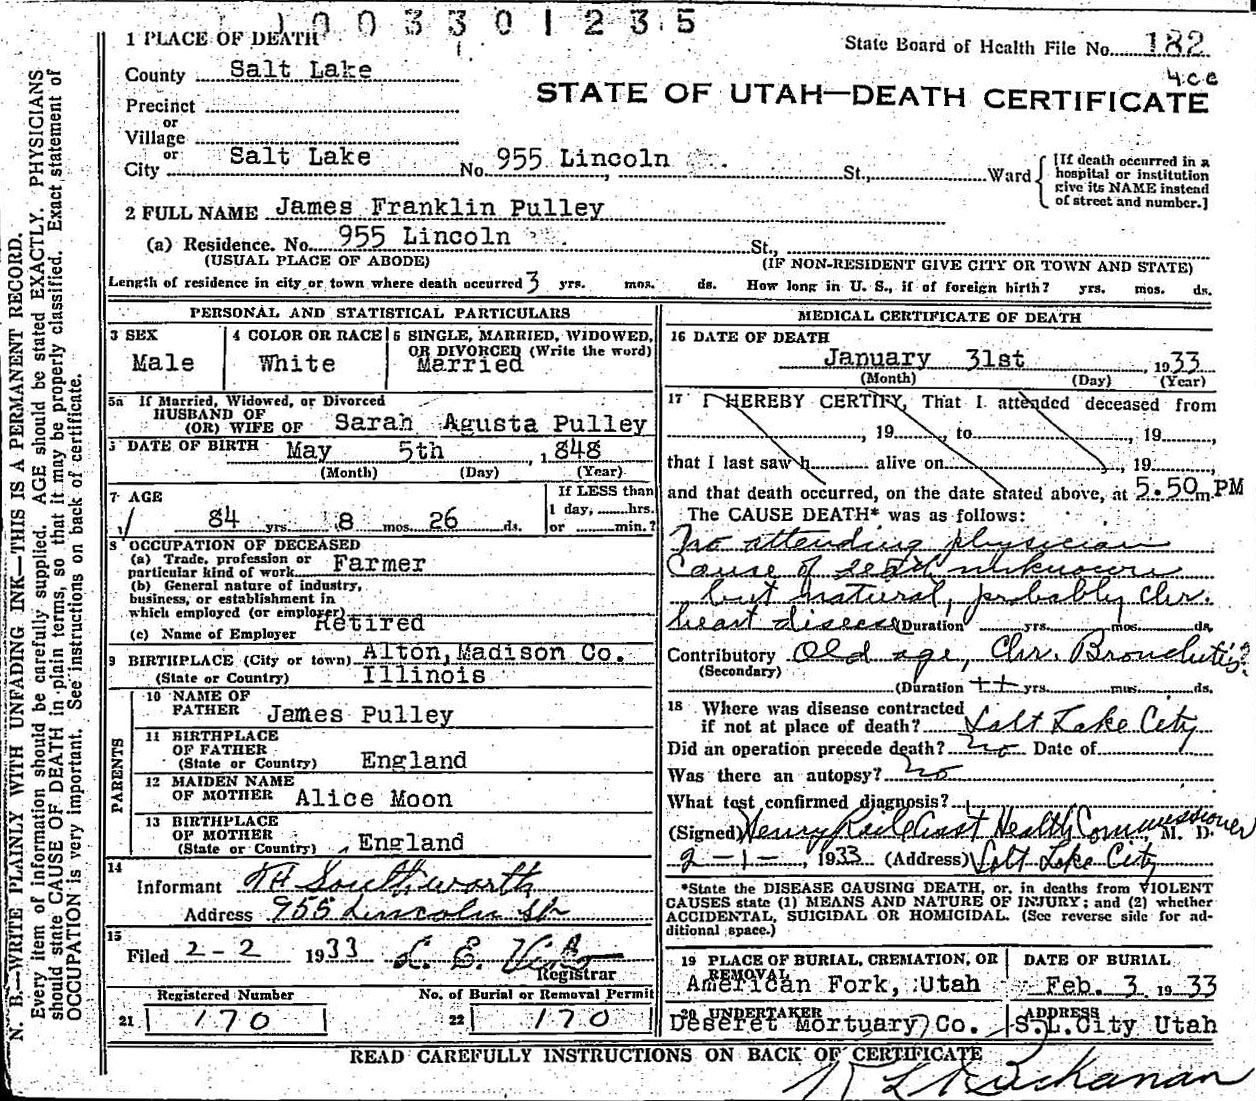 1003301235
1 PLACE OF DEATH
State Board of Health File No. 182
County Salt Lake
4 c e
STATE OF UTAH—DEATH CERTIFICATE
Precinct
or
Village
or
City Salt Lake No. 955 Lincoln St., Ward
[If death occurred in a
hospital or institution
give its NAME instead
of street and number.]
2 FULL NAME James Franklin Pulley
(a) Residence. No. 955 Lincoln St.,
(USUAL PLACE OF ABODE) (IF NON-RESIDENT GIVE CITY OR TOWN AND STATE)
Length of residence in city or town where death occurred 3 yrs. mos. ds. How long in U. S., if of foreign birth? yrs. mos. ds.
PERSONAL AND STATISTICAL PARTICULARS
3 SEX Male
4 COLOR OR RACE White
5 SINGLE, MARRIED, WIDOWED,
OR DIVORCED (Write the word)
Married
5a If Married, Widowed, or Divorced
HUSBAND OF
(OR) WIFE OF Sarah Agusta Pulley
DATE OF BIRTH May 5th, 1848
(Month) (Day) (Year)
7 AGE
84 yrs. 8 mos. 26 ds.
If LESS than
1 day, hrs.
or min.?
8 OCCUPATION OF DECEASED
(a) Trade, profession or
particular kind of work Farmer
(b) General nature of industry,
business, or establishment in
which employed (or employer) Retired
(c) Name of Employer
9 BIRTHPLACE (City or town) Alton, Madison Co.
(State or Country) Illinois
PARENTS
10 NAME OF
FATHER James Pulley
11 BIRTHPLACE
OF FATHER
(State or Country) England
12 MAIDEN NAME
OF MOTHER Alice Moon
13 BIRTHPLACE
OF MOTHER
(State or Country) England
14
Informant Southworth
Address 955 Lincoln St
15
Filed 2-2 1933 L. E.
Registrar
Registered Number No. of Burial or Removal Permit
21 170 22 170
MEDICAL CERTIFICATE OF DEATH
16 DATE OF DEATH
January 31st, 1933
(Month) (Day) (Year)
17 I HEREBY CERTIFY, That I attended deceased from
, 19 , to , 19 ,
that I last saw h alive on , 19 ,
and that death occurred, on the date stated above, at 5.50 m. PM
The CAUSE DEATH* was as follows:
No attending physician
Cause of death unknown
but natural, probably Chr.
heart disease (Duration yrs. mos. ds.
Contributory Old age, Chr. Bronchitis?
(Secondary)
(Duration ++ yrs. mos. ds.
18 Where was disease contracted
if not at place of death? Salt Lake City
Did an operation precede death? no Date of
Was there an autopsy? no
What test confirmed diagnosis?
(Signed) Henry Health Commissioner M. D.
2-1-, 1933 (Address) Salt Lake City
*State the DISEASE CAUSING DEATH, or, in deaths from VIOLENT
CAUSES state (1) MEANS AND NATURE OF INJURY; and (2) whether
ACCIDENTAL, SUICIDAL OR HOMICIDAL. (See reverse side for ad-
ditional space.)
19 PLACE OF BURIAL, CREMATION, OR
REMOVAL
American Fork, Utah
DATE OF BURIAL
Feb. 3 1933
20 UNDERTAKER
Deseret Mortuary Co.
ADDRESS
S.L.City Utah
READ CAREFULLY INSTRUCTIONS ON BACK OF CERTIFICATE
Buchanan
N. B.—WRITE PLAINLY WITH UNFADING INK—THIS IS A PERMANENT RECORD.
Every item of information should be carefully supplied. AGE should be stated EXACTLY. PHYSICIANS
should state CAUSE OF DEATH in plain terms, so that it may be properly classified. Exact statement of
OCCUPATION is very important. See instructions on back of certificate.